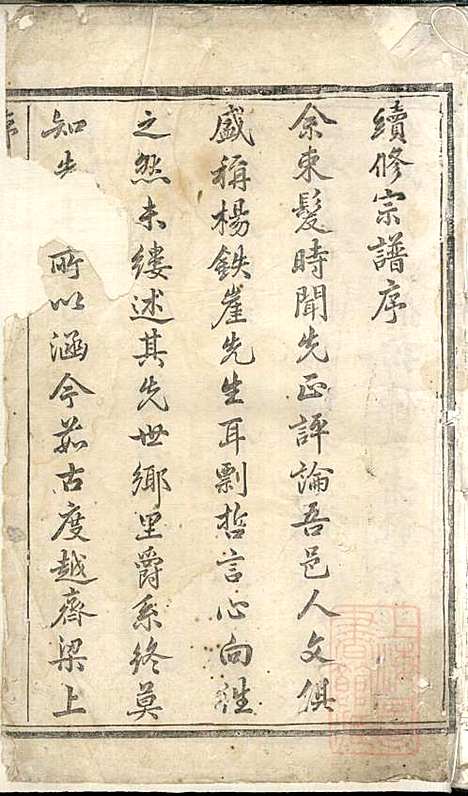 續修宗譜序
余束髮時聞先正評論吾邑人文俱
盛稱楊鉄崖先生耳剽哲言心向往
之然未縷述其先世鄉里爵系終莫
知先所以涵今茹古度越齊梁上